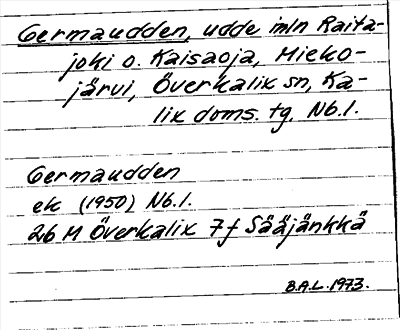 Germaudden, udde mln Raita-
joki o. Kaisaoja, Mieko-
järvi, Överkalix sn, Ka-
lix doms. tg, Nb.l.
Germaudden
ek (1950) Nb.l.
26 M Överkalix 7f Sääjänkkä
B.A.L. 1973.